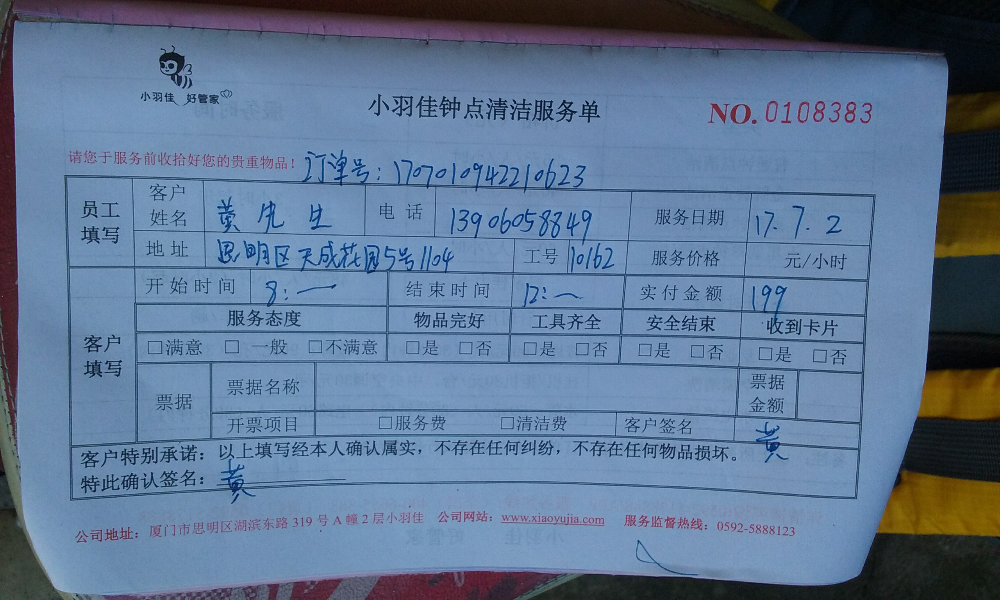 小羽佳 好管家
小羽佳钟点清洁服务单 NO.0108383
请您于服务前收拾好您的贵重物品！ 订单号：1707010942210623
员工填写 客户姓名 黄先生 电话 13906058849 服务日期 17.7.2
地址 思明区天成花园5号1104 工号 10162 服务价格 元/小时
客户填写 开始时间 8：一 结束时间 12：一 实付金额 199
服务态度 物品完好 工具齐全 安全结束 收到卡片
□满意 □一般 □不满意 □是 □否 □是 □否 □是 □否 □是 □否
票据 票据名称 票据金额
开票项目 □服务费 □清洁费 客户签名 黄
客户特别承诺：以上填写经本人确认属实，不存在任何纠纷，不存在任何物品损坏。
特此确认签名：黄
公司地址：厦门市思明区湖滨东路319号A幢2层小羽佳 公司网站：www.xiaoyujia.com 服务监督热线：0592-5888123